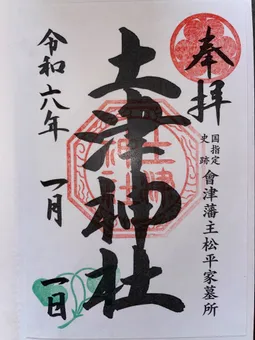 奉拝
国指定
史跡
會津藩主松平家墓所
土津神社
令和六年
一月
一日